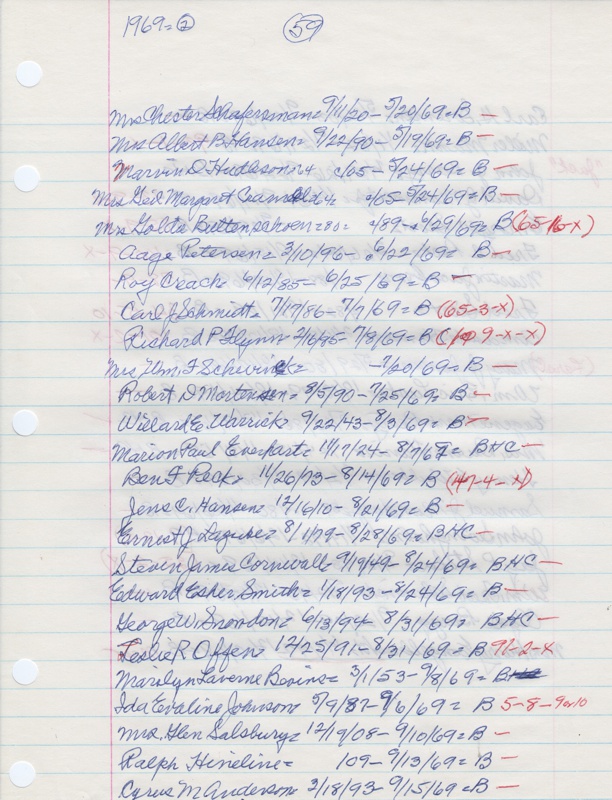 1969=② 59
Mrs Chester Schafersman= 9/11/20-5/20/69=B -
Mrs Albert B. Hansen= 9/22/90-5/19/69=B -
Marvin D 65-5/24/69=B -
Mrs Margaret 65-5/24/69=B -
Mrs 89- 6/29/69=B (65-16-x)
Aage Petersen= 3/10/96- 6/22/69=B -
Roy Crach= 6/12/85-6/25/69=B -
Carl J Schmidt= 7/17/86-7/7/69=B (65-3-x)
Richard P Flynn= 2/16/95-7/8/69=B 9-x-x)
Mrs Wm. F -7/20/69=B -
Robert D Mortensen= 8/5/90-7/25/69=B -
Willard E. Warrick= 9/22/43-8/3/69=B -
Marion Paul Everhart= 11/17/24-8/7/69= BHC -
Ben F Peck= 11/26/73-8/14/69=B (47-4-x)
Jens C. Hansen= 12/16/10-8/21/69=B -
Ernest J. 8/1/79-8/28/69=BHC -
Steven James Cornwall= 9/19/49-8/24/69= BHC -
Edward Esher Smith= 1/18/93-8/24/69= B -
George W. Snowdon= 6/13/94-8/31/69= BHC -
Leslie R Offen= 12/25/91-8/31/69= B 97-2-x
Marilyn Laverne Bevins= 3/1/53-9/8/69= B
Ida Evaline Johnson= 5/9/87-9/6/69= B 5-8-9or10
Mrs. Glen Salsbury= 12/19/08-9/10/69=B -
Ralph Hineline= 109-9/13/69=B -
Cyrus M Anderson= 3/18/93-9/15/69=B -